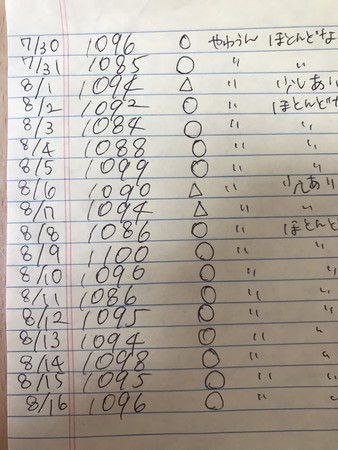 7/30 1096 ○ やわうん ほとんどな
7/31 1085 ○ 〃 〃
8/1 1094 △ 〃 少しあり
8/2 1092 ○ 〃 ほとんどな
8/3 1084 ○ 〃 〃
8/4 1088 ○ 〃 〃
8/5 1099 ○ 〃 〃
8/6 1090 △ 〃 少しあり
8/7 1094 △ 〃 〃
8/8 1086 ○ 〃 ほとんど
8/9 1100 ○ 〃 〃
8/10 1090 ○ 〃 〃
8/11 1086 ○ 〃 〃
8/12 1095 ○ 〃 〃
8/13 1094 ○ 〃 〃
8/14 1098 ○ 〃 〃
8/15 1095 ○ 〃 〃
8/16 1096 ○ 〃 〃